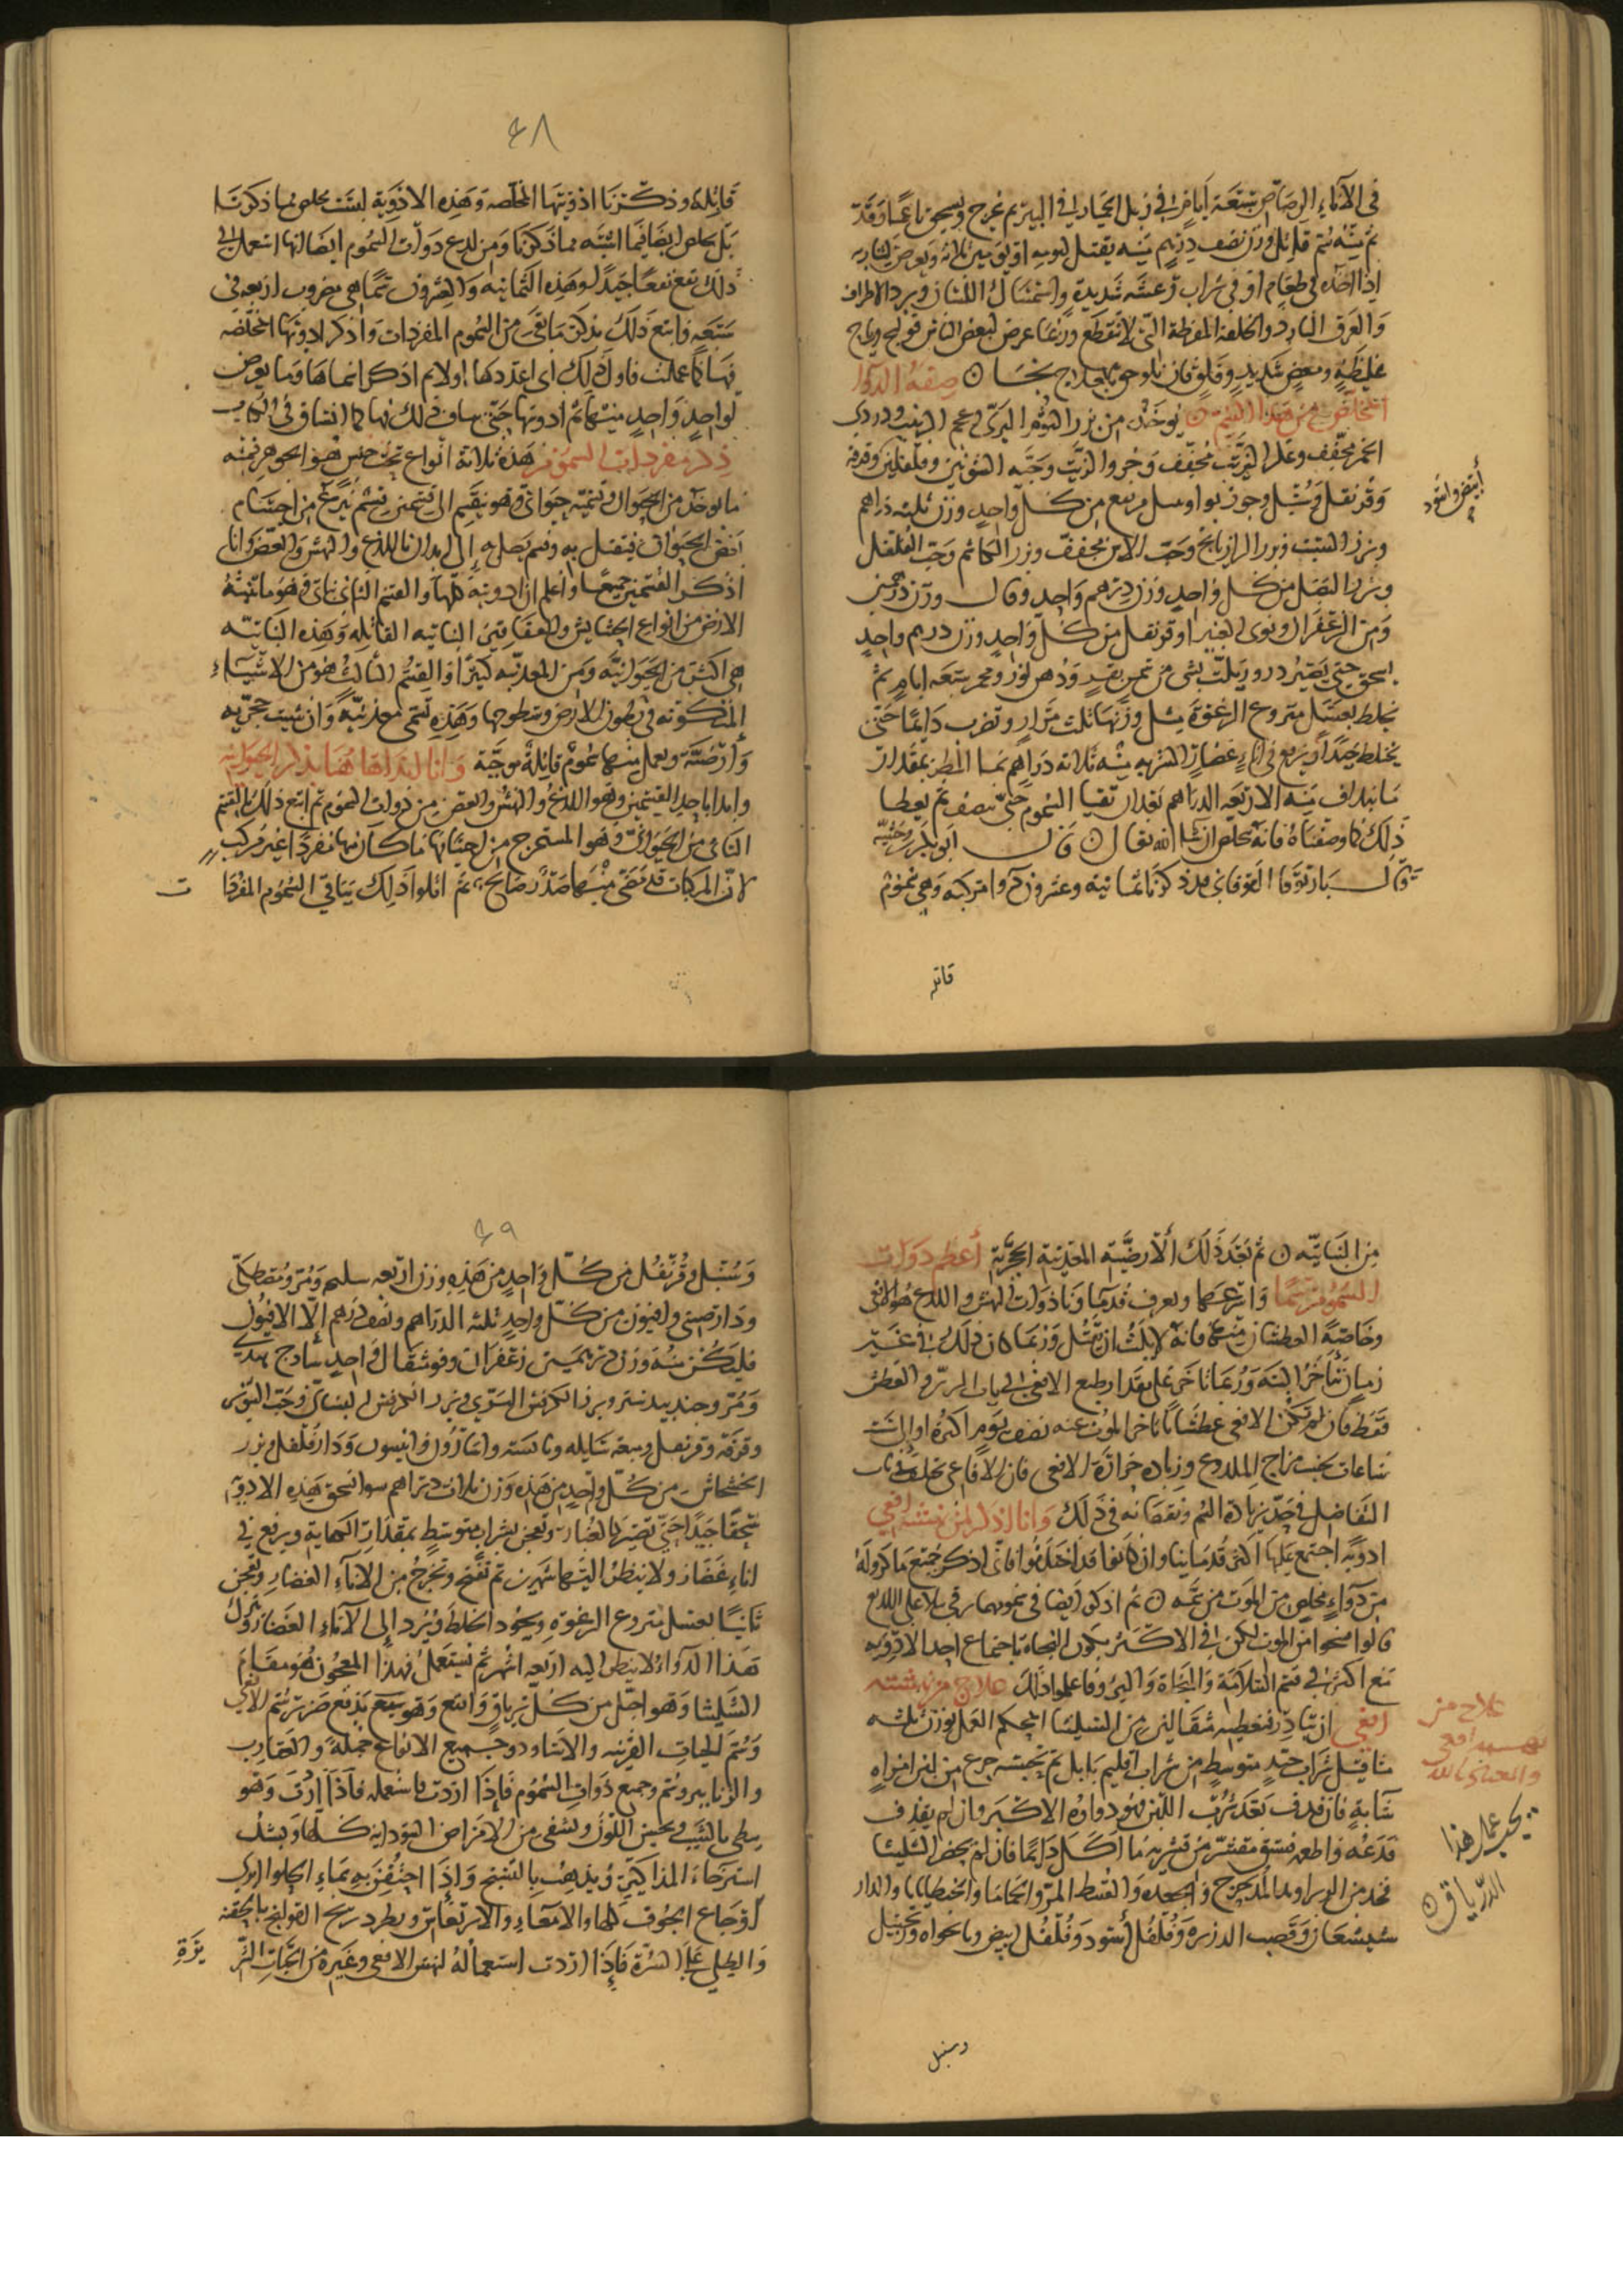 في الاناء الرصاص سبعة ايام في زبل الحمار في البير ثم يخرج ويسحق ناعما وقد
تم منه سم قاتل وزن نصف درهم منه يقتل ليومه او يومين ثالثه ويعرض لشاربه
اذا اخذه في طعام او في شراب رعشه شديدة واستمساك اللسان وبرد الاطراف
والعرق البارد والخلفة المفرطة التي لا تنقطع وربما عرض لبعض الناس قولنج ورياح
غليظه ومغص شديد وقلق فان تلوحق بالعلاج نجا صفة الدوا
المخلص من هذا السم يوخذ من بزر الثوم البري عجم الزبيب ودردي
الخمر مجفف وعكر الزيت مجفف وخرو الزيت وحبه الشونيز وفلفلين وقرفه
أبيض واسود
وقرنفل وسنبل وجوز بوا وعسل من كل واحد وزن ثلثه دراهم
وبزر الشبث وبزر الرازيانج وحب الاس مجفف وبزر الكاشم وحب الفلفل
وبزر البصل من كل واحد وزن درهم واحد وقال وزن درهمين
ومن الزعفران ونوى الغبيرا وقرنفل من كل واحد وزن درهم واحد
يسحق حتى يصير ذرور ويلت بشي من سمن بقر ودهن لوز ويخمر سبعه ايام ثم
يخلط بعسل منزوع الرغوة مثل وزنها ثلث مرار ويضرب دايما حتى
يختلط جيدا ويرفع في اناء غضار الشربه منه ثلاثه دراهم بما المطر بمقدار
ما يذاف منه الاربعه الدراهم بعد ان تقيا السموم حتى ينصف ثم يعطا
ذلك كما وصفناه فانه يخلص ان شا الله تعالى قال ابو بكر بن وحشيه
قال ياربوقا القوقاني قد ذكرنا ثمانيه وعشرون دوا مركبه وهي سموم
قاتله
٤٨
قاتله وذكرنا ادويتها المخلصه وهذه الادوية ليست تخلص مما ذكرنا
بل تخلص ايضا فيما اشبه مما ذكرنا ومن لدع دوات السموم ايضا انها استعمل في
ذلك تنفع نفعا جيدا وهذه الثمانيه والعشرون سما هي مضروب اربعه في
سبعه فاتبع ذلك بذكر ما بقي من السموم المفردات واذكر ادويتها المخلصه
منها كما عملت فاول ذلك اني اعددها اولا ثم اذكر اسماها وما يعرض
لواحد واحد منها ثم ادويتها حتى ينساق ذلك فيها كما انساق في الكتاب
ذكر مفردات السموم هذه ثلاثة انواع تحت جنس هو الجوهر فمنه
ما يوخذ من الحيوان ونسميه حيواني وهو ينقسم الى قسمين قسم يستخرج من اجسام
بعض الحيوان فيقتل به وقسم يصل الى ابداننا باللدغ والنهش والعض وانا
اذكر القسمين جميعا واعلم ان ادويته كلها والقسم الثاني نباتي فهو ما تنبته
الارض من انواع الحشايش والعقاقير النباتيه القاتله وهذه النباتيه
هي اكثر من الحيوانيه ومن المعدنيه كثيرا والقسم الثالث هو من الاشياء
المتكونه في بطون الارض وسطوحها وهذه تسمى معدنيه وان شيت حجريه
وارضيه ويعمل منها سموم قاتلة موحيه وانا ابتدا هاهنا بذكر الحيوانيه
وابدا باحد القسمين وهو اللدغ والنهش والعض من دوات السموم ثم اتبع ذلك بالقسم
الثاني من الحيواني وهو المستخرج من اجسامها ما كان منها مفردا غير مركب
لان المركبات قد مضى منها صدر صالح ثم اتلوا ذلك بباقي السموم المفردات
من النباتيه ثم بعد ذلك الارضية المعدنية الحجرية أعظم دوات
السموم سما واسرعها ويعرف قديما وانا دوات النهش واللدع هو الافعى
وخاصة العطشان منها فانه لا يلبث ان يقتل وربما كان ذلك في غير
زمان تاخر البته وربما تاخر على مقدار طبع الافعى في باب الري والعطش
فقط فان لم تكن الافعى عطشانا تاخر الموت عنه نصف يوم اكثره او الى ست
ساعات بحسب مزاج الملدوغ وزياده حرارة الافعى فان الافاعي تختلف في باب
التفاضل في حد زيادة السم ونقصانه في ذلك وانا اذكر لمن نهشته افعى
ادوية اجتمع عليها اكثر قدمانا وان كانوا قد اختلفوا فاني اذكر جميع ما ذكروه
من دواء مخلص من الموت من سمه ثم اذكر ايضا في نحوهما رقي تلا على اللدع
قالوا منجوا من الموت لكن في الاكثر يكون النجاة باجتماع احد الادويه
مع اكثر في قسم السلامة والنجاة والبرو فاعلموا ذلك علاج من نهشته
افعى ان يبادر فيعطيه مثقالين من الشليثا المحكم العمل بوزن ثلثه
علاج من
نهشه افعى
والعياذ بالله
مثاقيل شراب جيد متوسط من شراب اقليم بابل ثم يحسيه جرع من لبن امراه
شابه فان قذف بعد شرب اللبن فهو دواوه الاكبر وان لم يقذف
فدعه واطعمه فستق مقشر من قشريه ما اكل دايما فان لم يحضر الشليثا
يجب عمل هذا
الدرياق
فخذ من الزراوند المدحرج والجعده والقسط المر والحماما والجنطيانا والدار
شيشعان وقصب الذريره وفلفل أسود وفلفل ابيض ونانخواه وزنجبيل
وسنبل
٤٩
وسنبل وقرنفل من كل واحد من هذه وزن اربعه سليخه ومر ومصطكي
ودارصيني وافيون من كل واحد ثلثه الدراهم ونصف درهم الا الافيون
فليكن منه وزن درهمين زعفران وفو مثقال واحد سادج هندي
ومر وجندبيدستر وبزر الكرفس البري وبزر الكرفس البستاني وحب
وقرفه وقرنفل وميعه سايله ويابسه واسارون وانيسون ودارفلفل وبزر
الخشخاش من كل واحد من هذه وزن ثلاث دراهم سوا تسحق هذه الادويه
سحقا جيدا حتى تصير كالغبار وتعجن بشراب متوسط بمقدار الكفايه ويرفع في
اناء غضار ولا ينظر اليها شهرين ثم تفتح وتخرج من الاناء الغضار وتعجن
ثانيا بعسل منزوع الرغوه ويجود اختلاطه ويرد الى الاناء الغضار ويترك
هذا الدواء لا ينظر اليه اربعه اشهر ثم يستعمل فهذا المعجون هو مقام
الشليثا وهو اجل من كل ترياق وانفع وهو سريع يدفع ضرر سم الافاعي
وسم الحيات القرنيه والاساود وجميع الافاعي جملة والعقارب
والزنابير وسم وجميع دوات السموم فاذا اردت فاستعمله فاذا ارق وهو
يبطي بالشيب ويحسن اللون ويشفي من الامراض السوداويه كلها ويشد
استرخاء المذاكير ويذهب بالتشنج واذا احتقن به بماء الحلوا ابرى
اوجاع الجوف كلها والامعاء والارتعاش ويطرد ريح القولنج بالحقنه
والطلي على السرة فاذا اردت استعماله لنهش الافعى وغيره من الحيات الشر
يرة